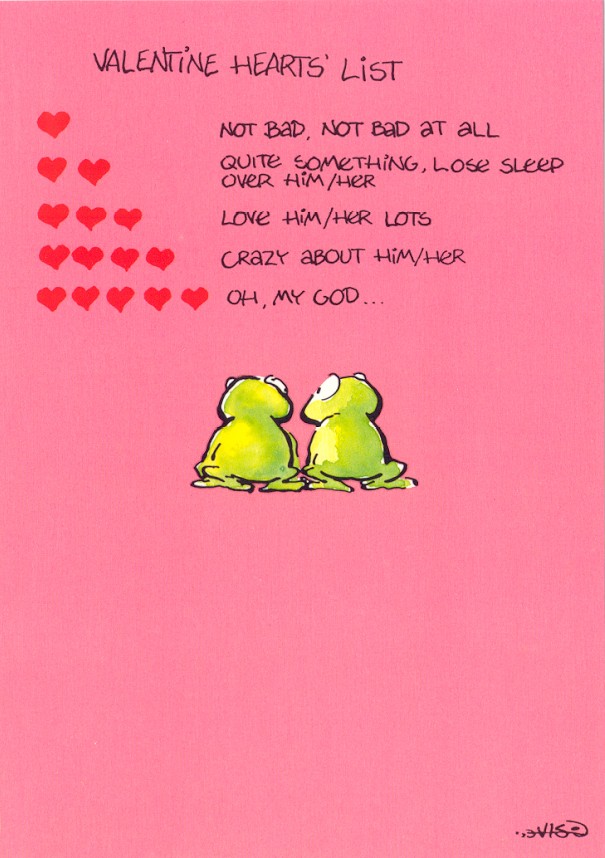 VALENTINE HEARTS' LIST
NOT BAD, NOT BAD AT ALL
QUITE SOMETHING, LOSE SLEEP
OVER HIM/HER
LOVE HIM/HER LOTS
CRAZY ABOUT HIM/HER
OH, MY GOD...